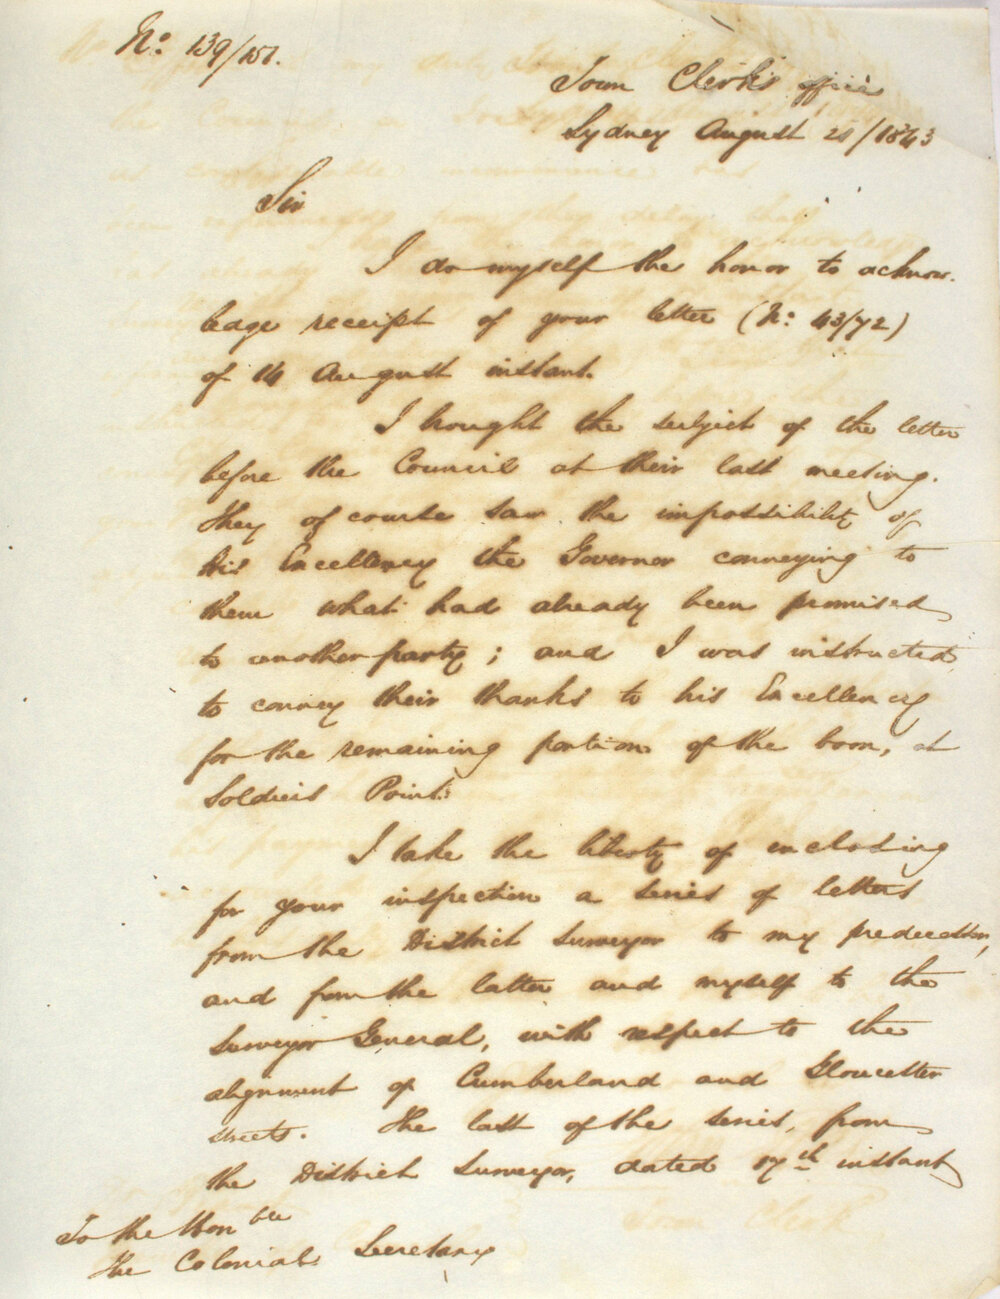 No. 139/151.
Town Clerk's office
Sydney August 21/1843
Sir
I do myself the honor to acknow-
ledge receipt of your letter (No. 43/72)
of 14 August instant.
I brought the subject of the letter
before the Council at their last meeting.
They of course saw the impossibility of
His Excellency the Governor conveying to
them what had already been promised
to another party; and I was instructed,
to convey their thanks to his Excellency
for the remaining portion of the boon, at
Soldiers Point.
I take the liberty of inclosing
for your inspection a series of letters
from the District Surveyor to my predecessor,
and from the latter and myself to the
Surveyor General, with respect to the
alignment of Cumberland and Gloucester
streets. The last of the series, from
the District Surveyor, dated 17th instant
To the Honble
the Colonial Secretary